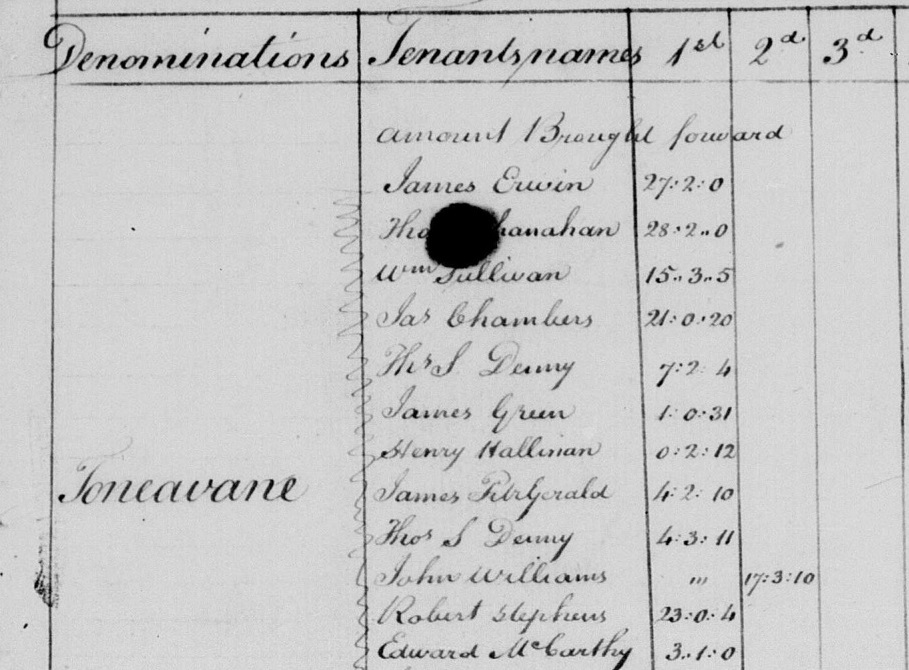 Denominations Tenants names 1st 2d 3d
amount Brought forward
James Erwin 27:2:0
hanahan 28:2..0
Wm Sullivan 15..3..5
Jas Chambers 21:0:20
Thos S. Denny 7:2:4
James Green 1:0:31
Henry Hallinan 0:2:12
Toneavane James FitzGerald 4:2:10
Thos S Denny 4:3:11
John Williams " 17:3:10
Robert Stephens 23:0:4
Edward McCarthy 3..1:0